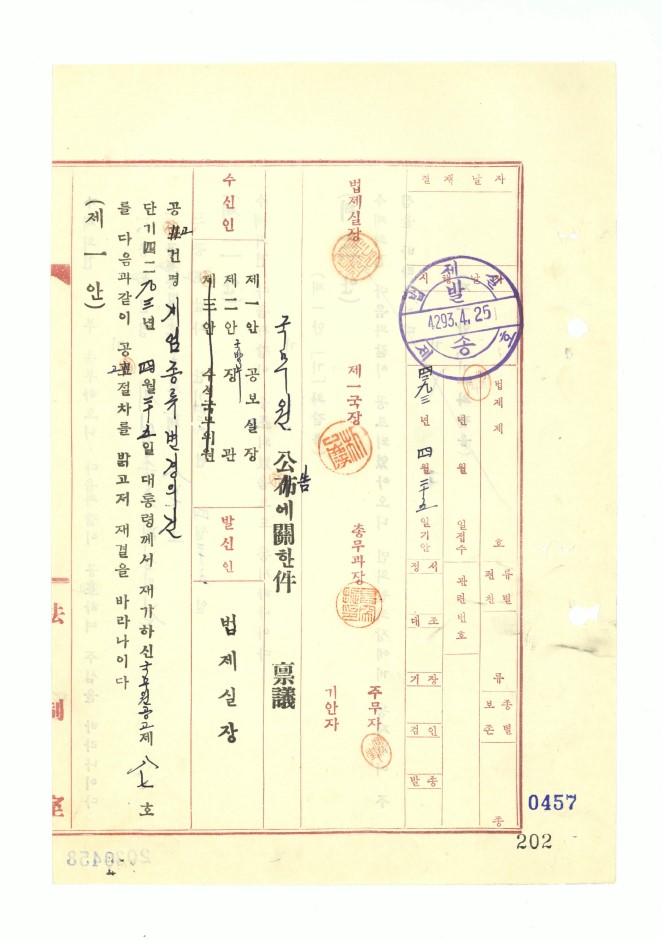 결재날자
시행날자
법제실
발송
4293.4.25
법제제 호
四二九三년 四월 二十五일기안
년 월 일접수
관련번호
류별
편찬
류
종별
보존
종
정서
대조
기장
검인
발송
법제실장
제一국장
총무과장
주무자
기안자
국무원 公佈에關한件 稟議
告
수신인
제一안 공보실장
제二안 국방부장관
제三안 수석국무위원
발신인
법제실장
공고건명 계엄종류변경의건
단기四二九三년 四월二十五일 대통령께서 재가하신 국무원공고제 八七 호
를 다음과같이 공고절차를 밝고저 재결을 바라나이다
(제一안)
法制室
0457
202